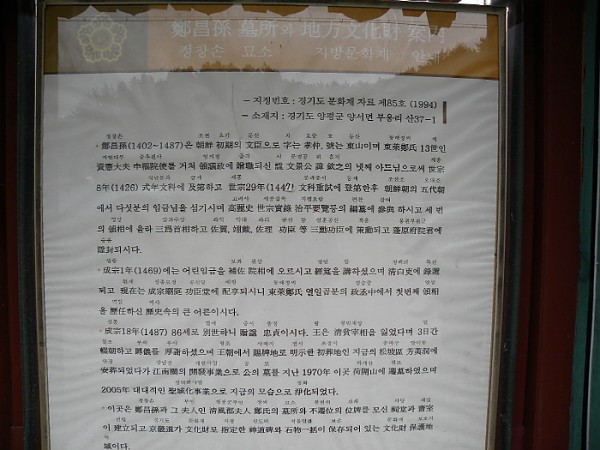 鄭昌孫 墓所와 地方文化財 案內
정창손 묘소 지방문화재 안내
- 지정번호 : 경기도 문화재 자료 제85호 (1994)
- 소재지 : 경기도 양평군 양서면 부용리 산37-1
정창손 조선 초기 문신 자 효중 호 동산 동래정씨 세
· 鄭昌孫(1402~1487)은 朝鮮 初期의 文臣으로 字는 孝仲, 號는 東山이며 東萊鄭氏 13世인
資憲大夫 中樞院使를 거쳐 領議政에 贈職되신 諡 文景公 諱 欽之의 넷째 아드님으로써 世宗
8年(1426) 式年文科에 及第하고 世宗29年(1447) 文科重試에 登第한후 朝鮮朝의 五代朝
에서 다섯분의 임금님을 섬기시며 高麗史 世宗實錄 治平要覽등의 編纂에 參與 하시고 세 번
의 領相에 올라 三爲首相하고 佐翼, 翊戴, 佐理 功臣 等 三勳功臣에 策勳되고 蓬原府院君에
陞封되시다.
· 成宗1年(1469)에는 어린임금을 補佐 院相에 오르시고 經筵을 講하셨으며 淸白吏에 錄選
되고 現在는 成宗廟庭 功臣堂에 配享되시니 東萊鄭氏 열일곱분의 政丞中에서 첫번째 領相
을 歷任하신 歷史속의 큰 어른이시다.
· 成宗18年(1487) 86세로 別世하니 諡는 忠貞이시다. 王은 淸貧宰相을 잃었다며 3日간
輟朝하고 葬儀를 厚葬하셨으며 王朝에서 賜牌地로 明示한 初葬地인 지금의 松坡區 芳荑洞에
安葬되었다가 江南圈의 開發事業으로 公의 墓를 지난 1970년 이곳 荷開山에 遷墓하였으며
2005年 대대적인 聖域化事業으로 지금의 모습으로 淨化되었다.
· 이곳은 鄭昌孫과 그 夫人인 淸風郡夫人 鄭氏의 墓所와 不遷位의 位牌를 모신 祠堂과 齋室
이 建立되고 京畿道가 文化財로 指定한 神道碑와 石物一括이 保存되어 있는 文化財 保護地
域이다.